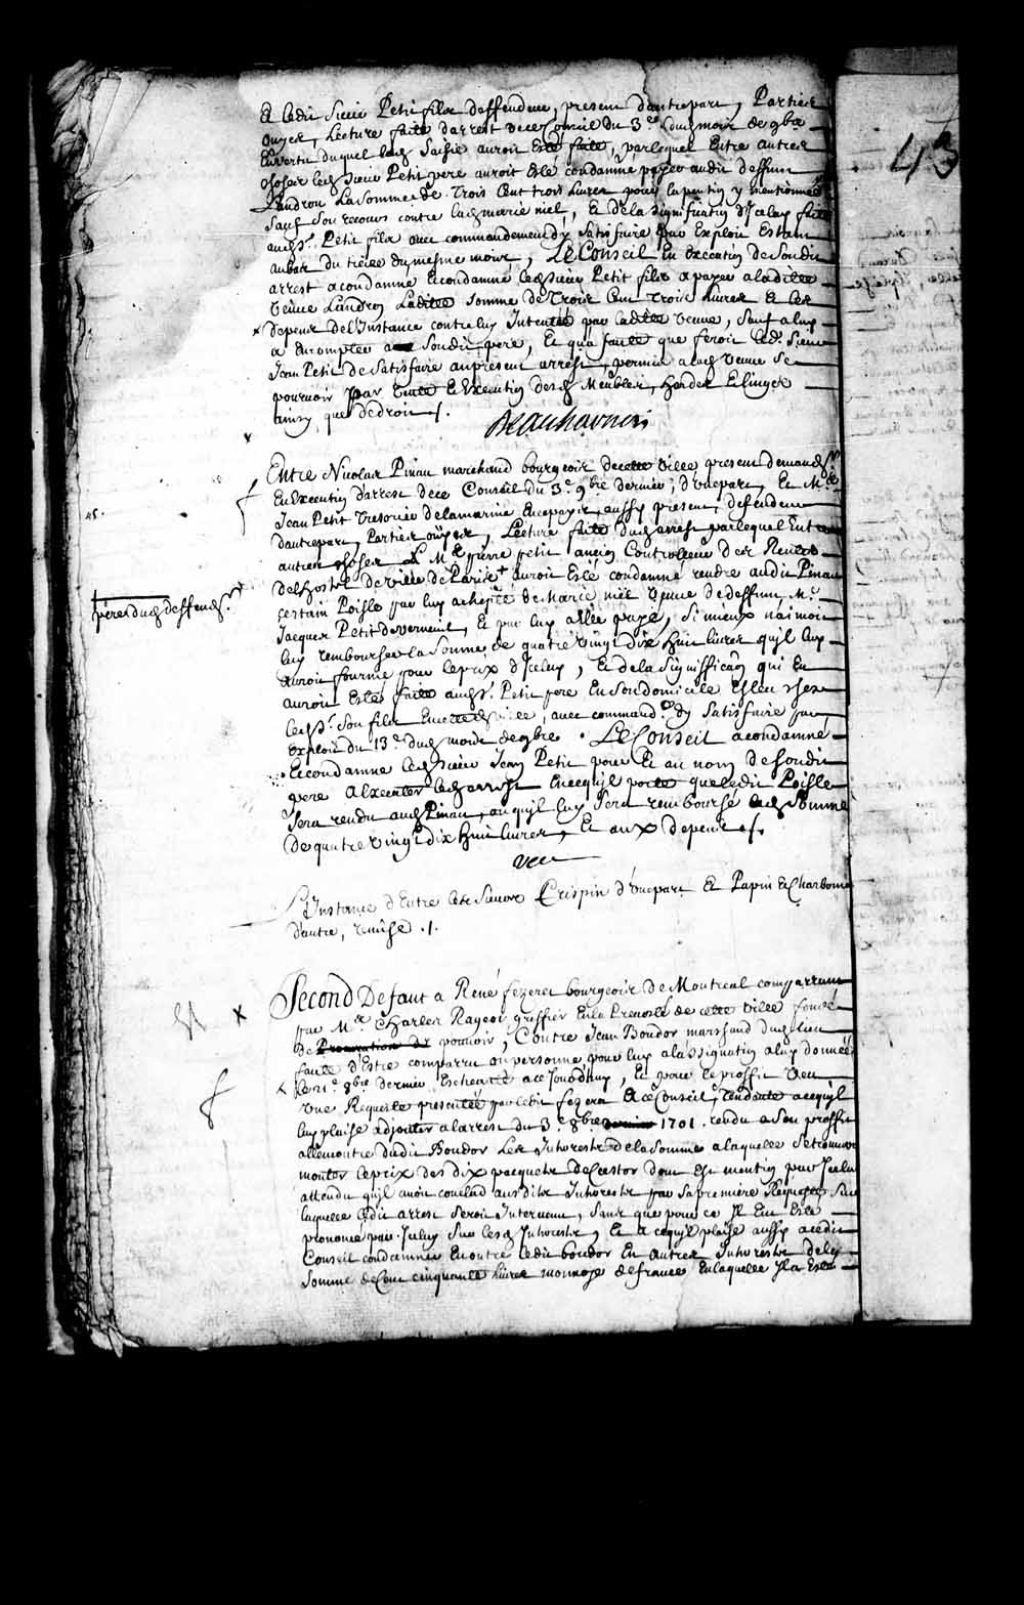 Et ledit Sieur Petit fils deffendeur, present d'autre part, Parties
ouyes, Lecture faite d'arrest de ce Conseil du 3.e dud. mois de 9bre
En vertu duquel lad. Saisie auroit esté faite, par lequel Entre autres
choses led. Sieur Petit pere auroit esté condamné payer audit deffunt
Landron La Somme de Trois Cent trois Livres pour y mentionnée
Sauf Son recours contre lad. marie niel, Et de la Signification d'Iceluy faite
aud. S.r Petit fils avec commandement d'y Satisfaire par Exploit Estant
au bas du mesme mois, Le Conseil En Execution de Sondit
arrest a condamné Et condamne led. Sieur Petit fils a payer a ladite
veuve Landron Ladite Somme de Trois Cent Trois Livres Et les
depens de l'Instance contre luy Intentée par ladite veuve, Sauf a luy
a En compter a Sondit pere, Et qu'a faute que feroit led. Sieur
Jean Petit de Satisfaire au present arrest, permis a lad. veuve Se
pourvoir par Execution des d. Meubles, hardes Et linges
ainsy que de droit ./.
Beauharnois
Entre Nicolas Pinau marchand bourgeois de cette ville present demand.r
En Execution d'arrest de ce Conseil du 3.e 9bre dernier, d'une part, Et M.e
Jean Petit Tresorier de la marine En ce pays, aussy present, defendeur
d'autre part, Parties ouyes, Lecture faite dud. arrest par lequel Entre
autres choses M.e pierre petit ancien Controlleur des Rentes
de l'hostel de ville de Paris + auroit Esté condamné rendre audit Pinau
pere dud. deffend.r
certain Poisle par luy achepté de Marie niel veuve de deffunt M.e
Jacques Petit de verneuil, Et par luy payé, Si mieux n'aimoit
luy rembourser la Somme de quatre vingt dix huit livres qu'il luy
auroit fournie pour le prix d'Iceluy, Et de la Signification qui En
auroit Esté faite aud. S.r Petit pere En Son domicile Esleu chez
led. S.r Son fils En cette ville, avec command.t d'y Satisfaire par
Exploit du 13.e dud. mois de 9bre. Le Conseil a condamné
Et condamne led. Sieur Jean Petit pour Et au nom de Sondit
pere a Executer led. arrest En ce qu'il porte que ledit Poisle
Sera rendu aud. Pinau, ou qu'il luy Sera remboursé lad. Somme
de quatre vingt dix huit livres, Et aux depens ./.
veu
L'Instance d'Entre les Sieurs Crispin d'une part Et Papin Et Charbonn
d'autre, remise ./.
Second Defaut a René fezeret bourgeois de Montreal comparant
par M.e Charles Rageot greffier En la Prevosté de cette ville fondé
de Procuration de pouvoir, Contre Jean Boudor marchand dud. lieu
faute d'Estre comparu en personne, pour luy a l'assignation a luy donnée
le 21.e 8bre dernier Escheante a ce Jourd'huy, Et pour le proffit Veu
une Requeste presentée par ledit fezeret a ce Conseil, Tendante a ce qu'il
luy plaise adjouter a l'arrest du 3.e 8bre 1701. rendu a Son proffit
allencontre dudit Boudor Les Interests de la Somme a laquelle Se trouvera
monter le prix des dix pacquets de Castor dont Est mention par Iceluy
attendu qu'il avoit conclud ausdits Interests par Sa premiere Requeste Sur
laquelle ledit arrest Seroit Intervenu, Sans que pour ce Il Eut Esté
prononcé par Iceluy Sur lesd. Interests, Et a ce qu'il plaise aussy audit
Conseil condamner En outre ledit boudor En autres Interests de la
Somme de Cent cinquante livres monnoye de france En laquelle Il a Esté
43